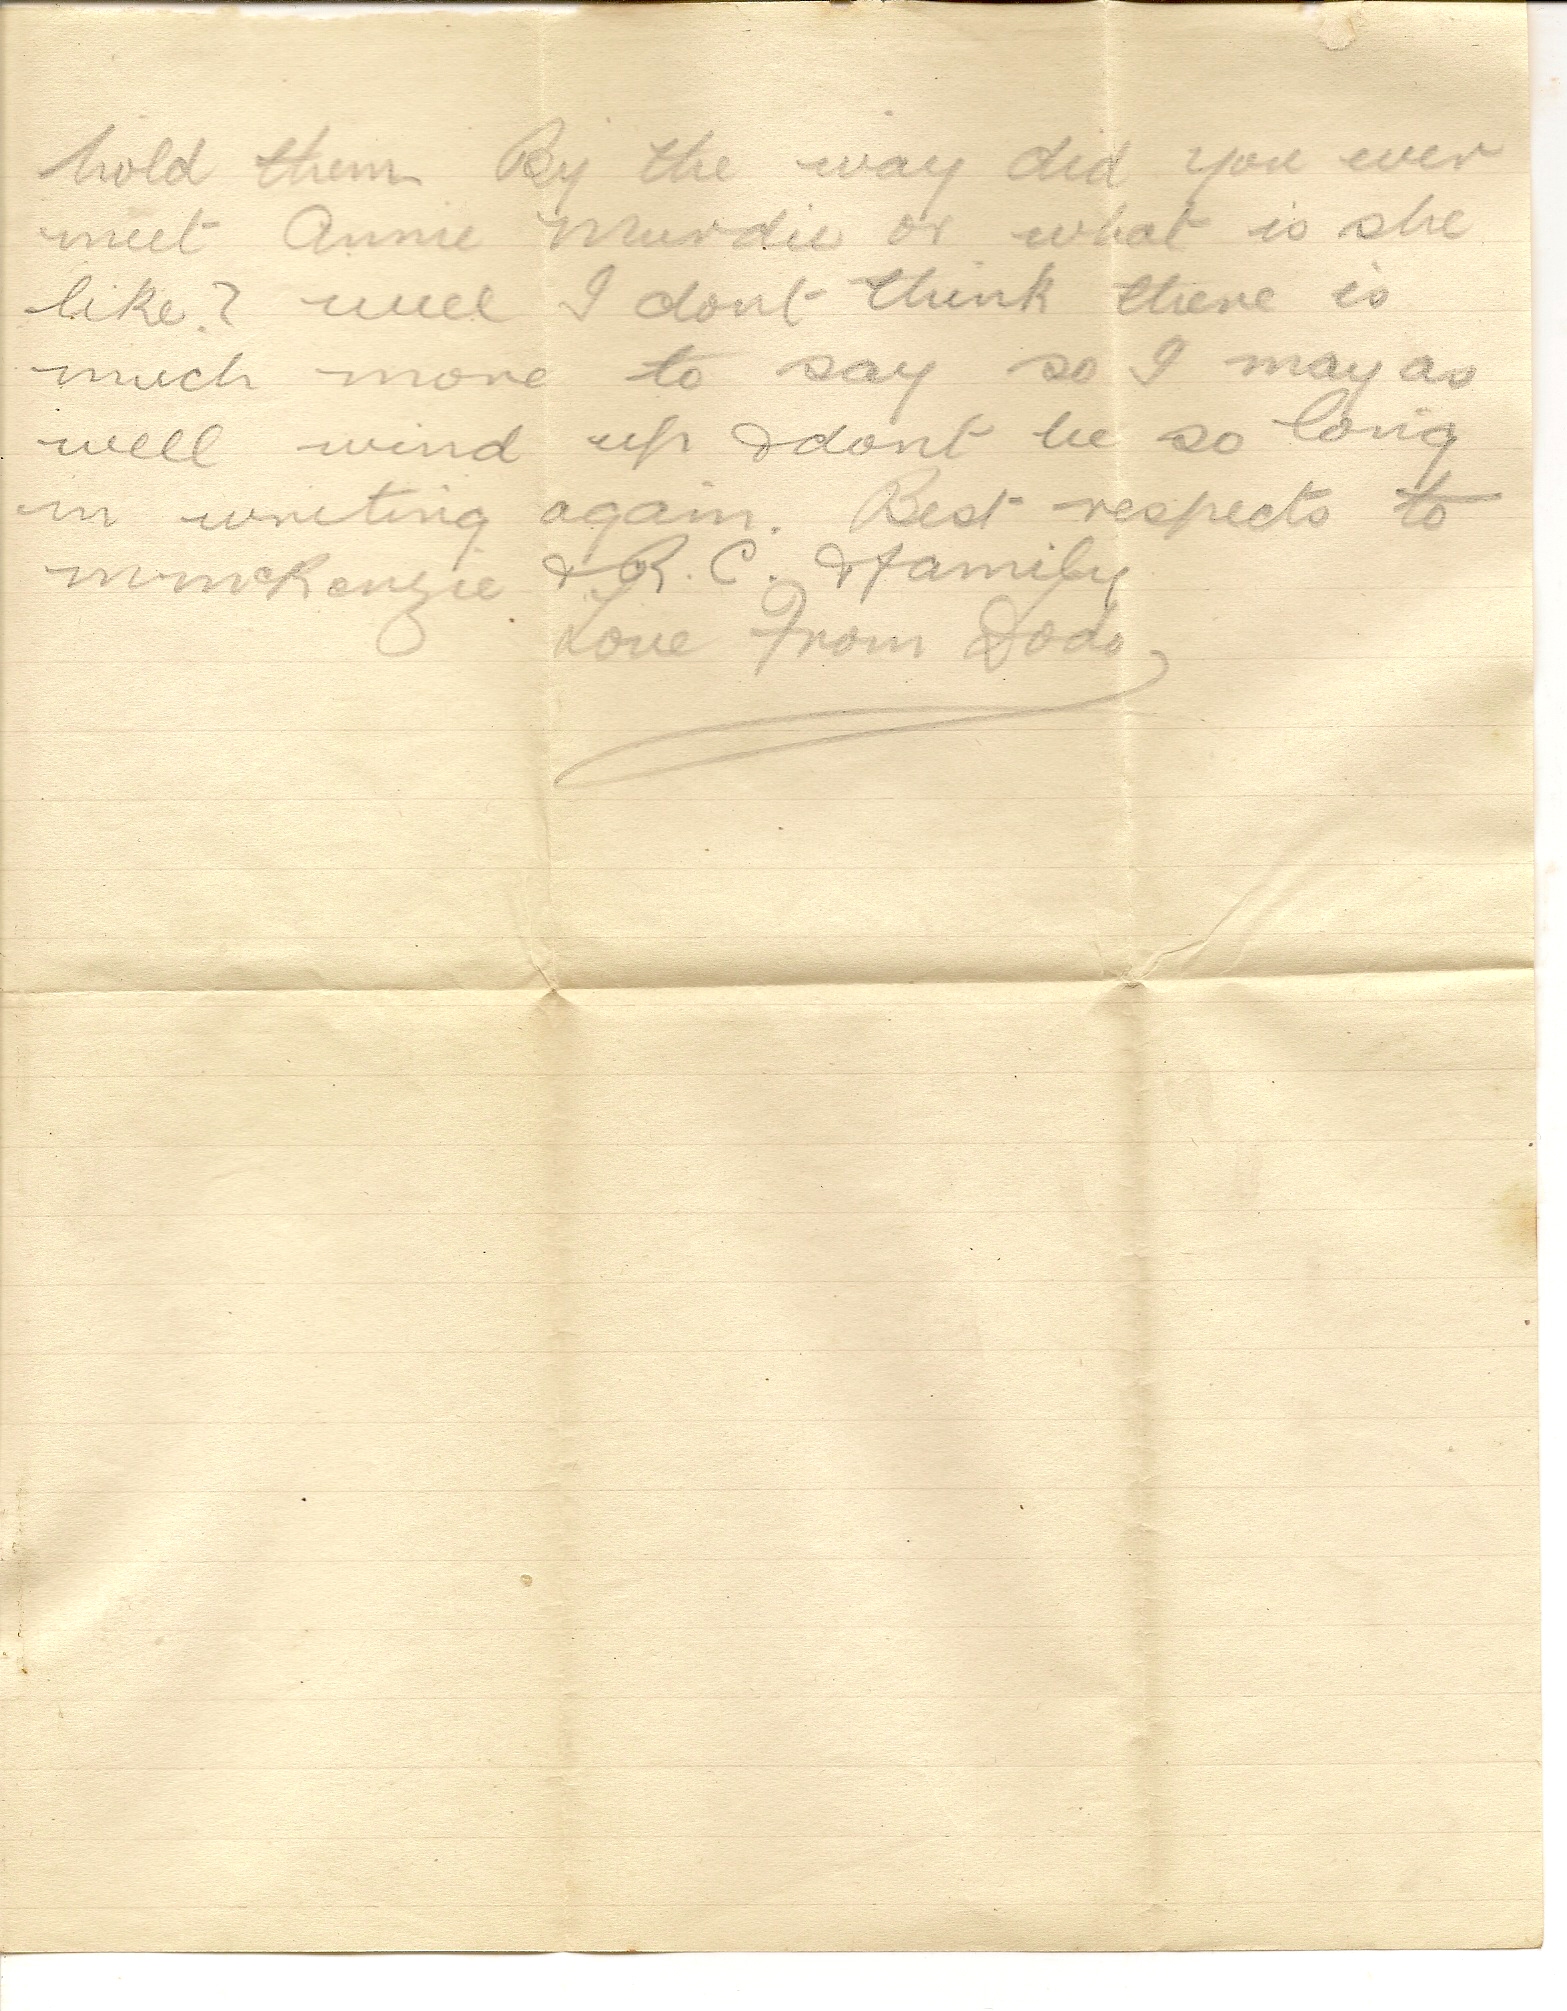 hold them By the way did you ever
meet Annie Murdie or what is she
like? well I dont think there is
much more to say so I may as
well wind up & dont be so long
in writing again. Best respects to
Mr McKenzie & R. C. & family
Love From Dodo